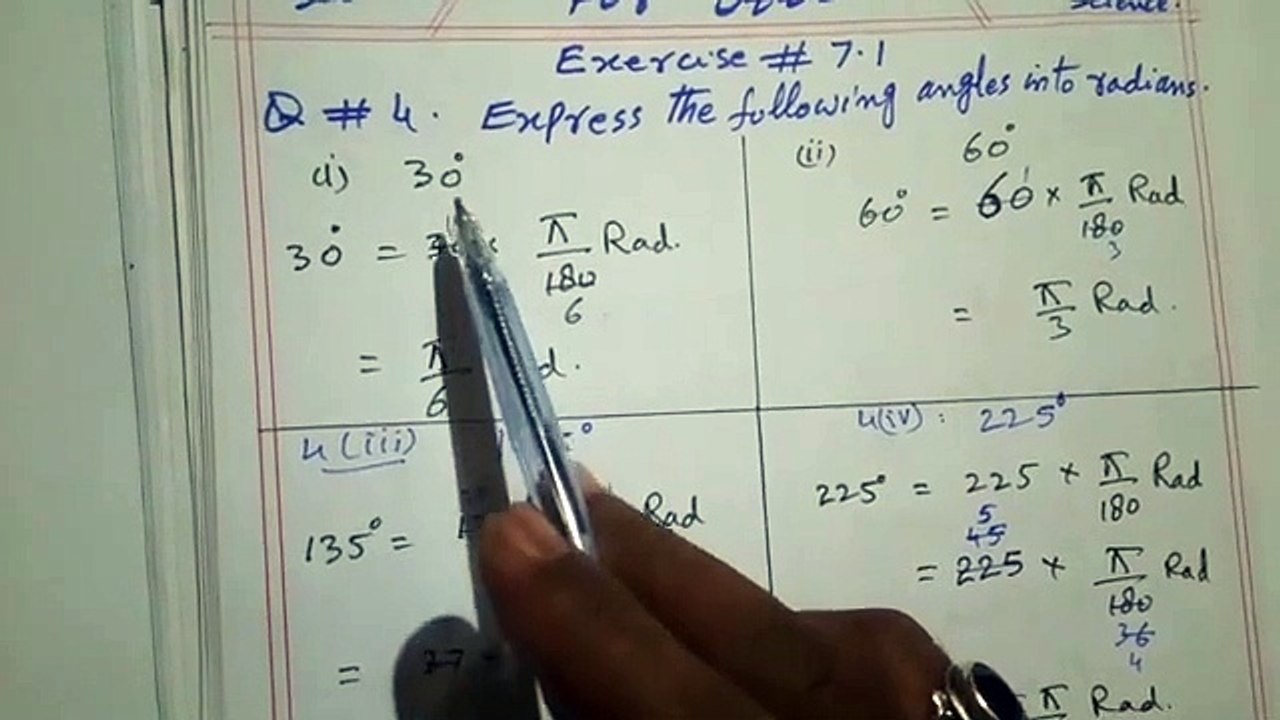 Science.
Exercise # 7.1
Q # 4. Express the following angles into radians.
(i) 30°
30° = π/180 Rad.
6
= π/6
(ii) 60°
60° = 60 × π/180 Rad
3
= π/3 Rad.
4(iii)
135° = Rad
=
4(iv): 225°
225° = 225 × π/180 Rad
5
45
= 225 × π/180 Rad
36
4
π Rad.